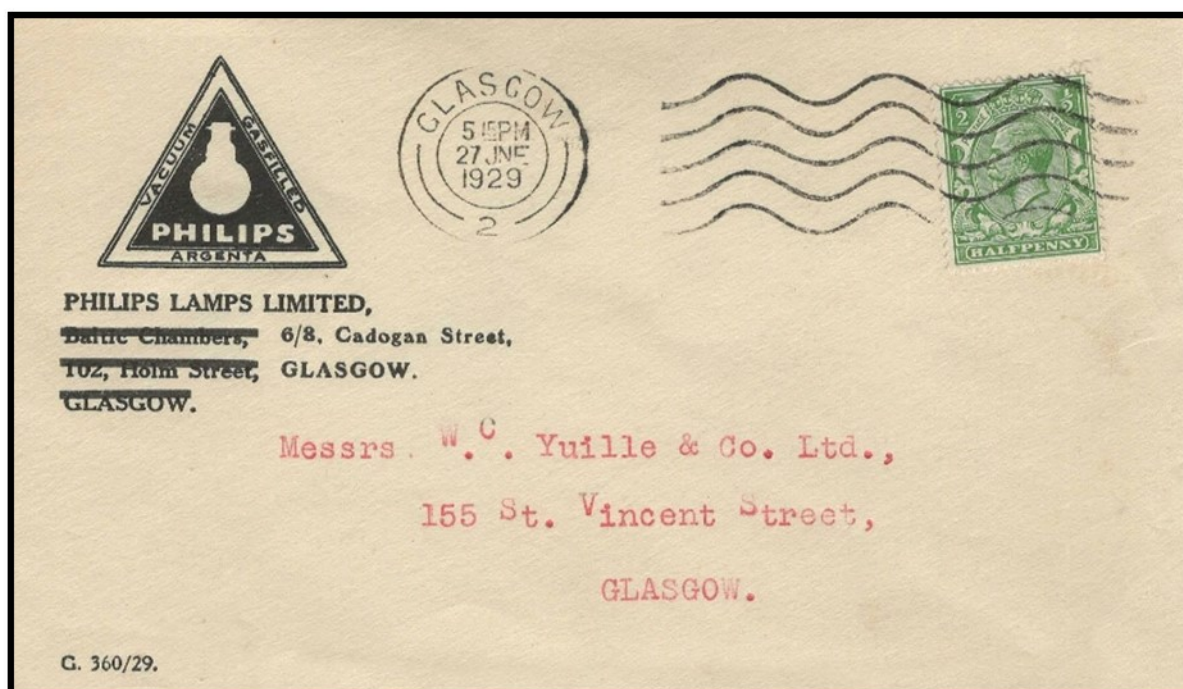 VACUUM
GASFILLED
PHILIPS
ARGENTA
GLASGOW
5 15 PM
27 JNE
1929
2
½ ½
HALFPENNY
PHILIPS LAMPS LIMITED,
Baltic Chambers, 6/8, Cadogan Street,
102, Holm Street, GLASGOW.
GLASGOW.
Messrs. W.C. Yuille & Co. Ltd.,
155 St. Vincent Street,
GLASGOW.
G. 360/29.